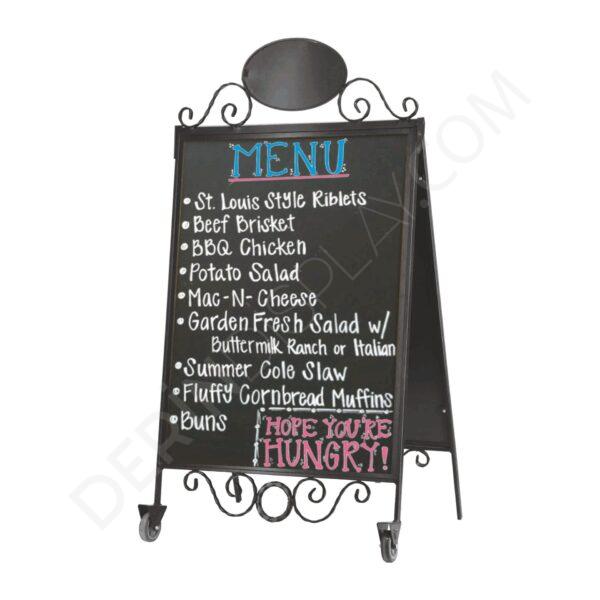 MENU
• St. Louis Style Riblets
• Beef Brisket
• BBQ Chicken
• Potato Salad
• Mac-N-Cheese
• Garden Fresh Salad w/
Buttermilk Ranch or Italian
• Summer Cole Slaw
• Fluffy Cornbread Muffins
• Buns
HOPE YOU'RE
HUNGRY!